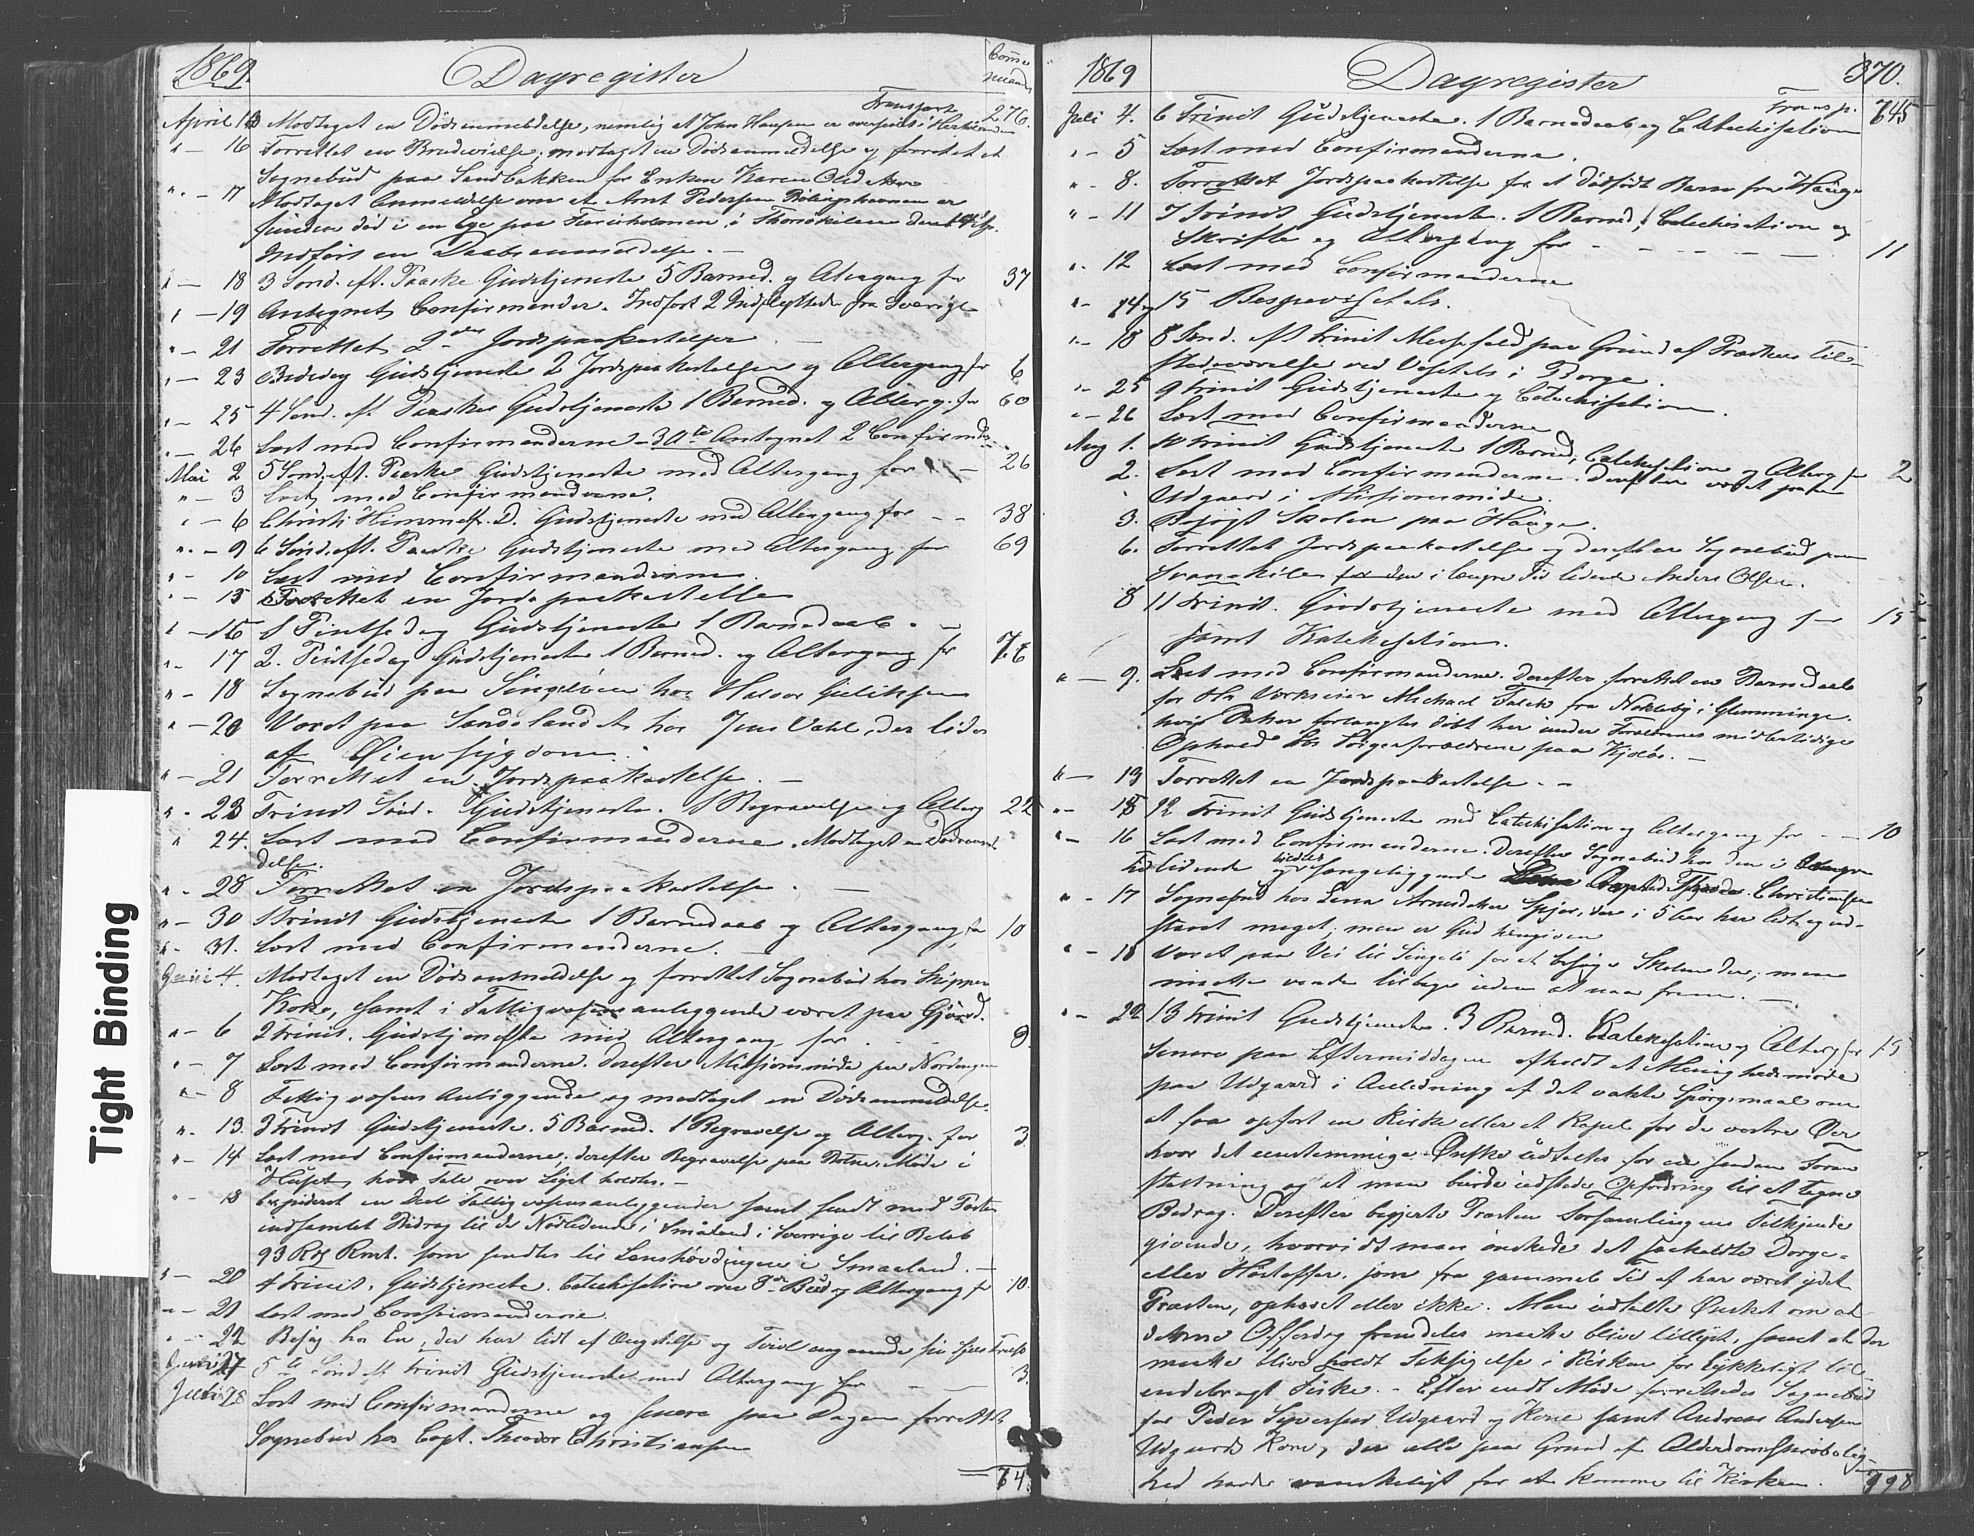 1869 Dagregister Commu-
nicants
Transport 276.
April 13 Modtaget en Dødsanmeldelse, nemlig at John Hansen er
" — 16 Forrettet en Brudevielse; modtaget en Dødsanmeldelse og forrettet et
Sognebud paa Sandbakken for Enken Karen
" — 17 Modtaget Anmeldelse om at Arnt Pedersen er
funden død i en Ege paa i Thorsekilen den
Indført en Daabsanmeldelse.
" — 18 3 Sønd. eft. Paaske Gudstjeneste 5 Barned. og Altergang for 37
" — 19 Antegnet Confirmander. Indført 2 Indflyttede fra Sverige
" — 21 Forrettet 2de Jordspaakastelser
" — 23 Bededag Gudstjeneste 2 Jordspaakastelser og Altergang for 6
" — 25 4 Sønd. eft. Paaske Gudstjeneste 1 Barned. og Alterg. for 60
" — 26 Læst med Confirmanderne — 30te Antegnet 2 Confirmander
Mai 2 5 Sønd. eft. Paaske Gudstjeneste med Altergang for — 26
" — 3 Læst med Confirmanderne.
" — 6 Christi Himmelf. D. Gudstjeneste med Altergang for — — 38
" — 9 6 Sønd. eft. Paaske Gudstjeneste med Altergang for 69
" — 10 Læst med Confirmanderne.
" — 15 Forrettet en Jordspaakastelse
" — 16 1 Pintsedag Gudstjeneste 1 Barnedaab. —
" — 17 2. Pintsedag Gudstjeneste 1 Barned. og Altergang for 76
" — 18 Sognebud paa Singeløen hos Halvor Guliksen
" — 20 Været paa Sandølandet hos Jens Vahl, der lider
af Øiensygdom.
" — 21 Forrettet en Jordspaakastelse. —
" — 23 Trinit. Sønd. Gudstjeneste. 1 Begravelse og Alterg 22
" 24. Læst med Confirmanderne. Modtaget en Dødsanmel-
delse.
" — 28 Forrettet en Jordspaakastelse. —
" — 30 1 Trinit Gudstjeneste 1 Barnedaab og Altergang for 10
" — 31. Læst med Confirmanderne. —
Juni 4. Modtaget en Dødsanmeldelse og forrettet Sognebud hos Skipper
Koke, samt i Fattigvæsensanliggende været paa Gjøard.
" — 6 2 Trinit. Gudstjeneste med Altergang for 9.
" — 7 Læst med Confirmanderne. derefter Missionsmøde paa Nordengen
" — 8 Fattigvæsens Anliggende og modtaget en Dødsanmeldelse.
" — 13. 3 Trinit Gudstjeneste. 5 Barned. 1 Begravelse og Alterg. for 3.
" — 14 Læst med Confirmanderne; derefter Begravelse paa Møde i
Huset, hvor Tale over Liget holdtes. —
" — 18 Expederet en Deel Fattigvæsensanliggender samt sendt med Posten
indsamlet Bidrag til de Nødlidende i Småland i Sverrige til Beløb
93 Rdr Rmt. som sendtes til Lanshøvdingen i Smaaland. —
" — 20 4 Trinit. Gudstjeneste. Catechisation over 8de Bud og Altergang for 10.
" — 21 Læst med Confirmanderne
" — 22 Besøg hos En, der har lidt af Ængstelse og Tvivl angaaende sin Sjæls Frelse
27 5te Sønd. eft Trinit Gudstjeneste med Altergang for — — 3.
28 Læst med Confirmanderne og senere paa Dagen forrettet
Sognebud hos Capt. Theodor Christiansen
645
Tight Binding
1869 Dagregister 370.
Transp. 645
Juli 4. 6 Trinit Gudstjeneste. 1 Barnedaab og Catechisation
" — 5 Læst med Confirmanderne.
" — 8. Forrettet Jordspaakastelse for et dødfødt Barn fra Hauge
" — 11 7 Trinit Gudstjeneste. 1 Barned., Catechisation og
Skrifte og Altergang for — — — — — — 11
" — 12 Læst med Confirmanderne
" — 14 og 15 Bispevisitats.
" — 18 8 Sønd. eft Trinit Messefald paa Grund af Præstens Til-
stedeværelse ved Visitats i Borge.
" — 25 9 Trinit Gudstjeneste og Catechisation.
" — 26 Læst med Confirmanderne
Aug 1. 10 Trinit Gudstjeneste 1 Barned, Catechisation og Alterg for 2
2. Læst med Confirmanderne. Derefter været paa
Udgaard i Missionsmøde.
3. Besøgt Skolen paa Hauge.
6. Forrettet Jordspaakastelse og derefter Sognebud paa
Svanekilen for den i længre Tid lidende Anders Olsen.
8 11 Trinit. Gudstjeneste med Altergang for 15
samt Katekesation.
" — 9. Læst med Confirmanderne. derefter forrettet en Barnedaab
for Hr Værkseier Michael Falck fra Nokleby i Glemminge.
hvis Datter forlangtes døbt her under Forældrenes midlertidige
Ophold hos Svigerforældrene paa Kjøløs. —
" — 13 Forrettet en Jordspaakastelse. —
" — 15 12 Trinit Gudstjeneste med Catechisation og Altergang for — — 10
" — 16 Læst med Confirmanderne. Derefter Sognebud hos den i længre
Tid lidende og sengeliggende Christiansen
" — 17 Sognebud hos Lena Arnesdatter Spjær, der i 5 Uger har lidt og ud-
staaet meget; men er Gud hengiven
" — 18 Været paa Vei til Singelø for at besøge Skolen der; men
maatte vende tilbage uden at naa frem. —
" — 22 13 Trinit Gudstjeneste. 3 Barned. Katekesation og Alterg for 15
Senere paa Eftermiddagen afholdt et Menighedsmøde
paa Udgaard i Anledning af det vakte Spørgsmaal om
at faa opført en Kirke eller et Kapel for de vestre Øer
hvor det eenstemmige Ønske udtaltes for en saadan Foran-
staltning og at man burde udstede Opfordring til at tegne
Bidrag. Derefter begjerte Præsten Forsamlingens Tilkjende-
givende, hvorvidt man ønskede det saakaldte Dorge-
eller Høstoffer, som fra gammel Tid af har været ydet
Præsten, ophævet eller ikke. Man udtalte Ønsket om at
denne Offerdag fremdeles maatte blive tillyst, samt at der
maatte blive holdt Taksigelse i Kirken for lykkeligt til-
endebragt Fiske. — Efter endt Møde forrettedes Sognebud
for Peder Syversen Udgaard og Kone samt Andreas Andersen
Udgaards Kone, der alle paa Grund af Alderdomsskrøbelig-
hed havde vanskeligt for at komme til Kirken. 798